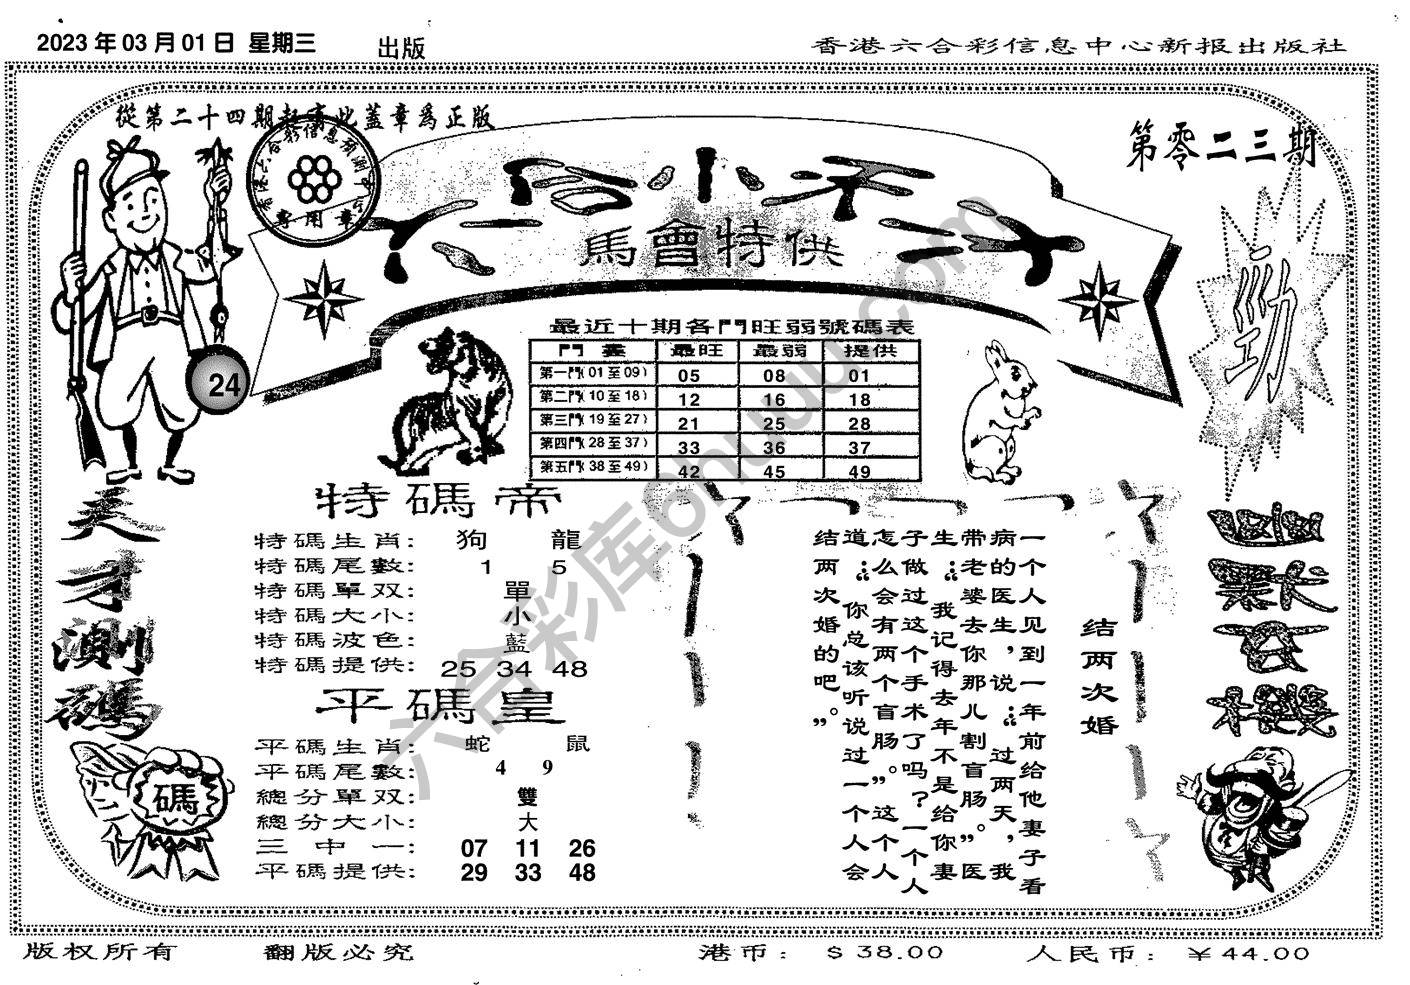 2023年03月01日 星期三 出版
香港六合彩信息中心新报出版社
從第二十四期起有此蓋章爲正版
第零二三期
專用章
馬會特供
勁
24
最近十期各門旺弱號碼表
門 最旺 最弱 提供
第一門(01至09) 05 08 01
第二門(10至18) 12 16 18
第三門(19至27) 21 25 28
第四門(28至37) 33 36 37
第五門(38至49) 42 45 49
天才測碼
特碼帝
特碼生肖: 狗 龍
特碼尾數: 1 5
特碼單双: 單
特碼大小: 小
特碼波色: 藍
特碼提供: 25 34 48
平碼皇
平碼生肖: 蛇 鼠
平碼尾數: 4 9
總分單双: 雙
總分大小: 大
三中一: 07 11 26
平碼提供: 29 33 48
碼
结两次婚
一个人见到一年前给他妻子看
病的医生，说：“过两天，我
带老婆去你那儿割盲肠”。医
生：“我记得去年不是给你妻
子做过这个手术了吗？一个人
怎么会有两个盲肠”。这个人
道：“你总该听说过一个人会
结两次婚的吧。”
六合彩库6huuu.com
版权所有 翻版必究 港币: $38.00 人民币: ￥44.00